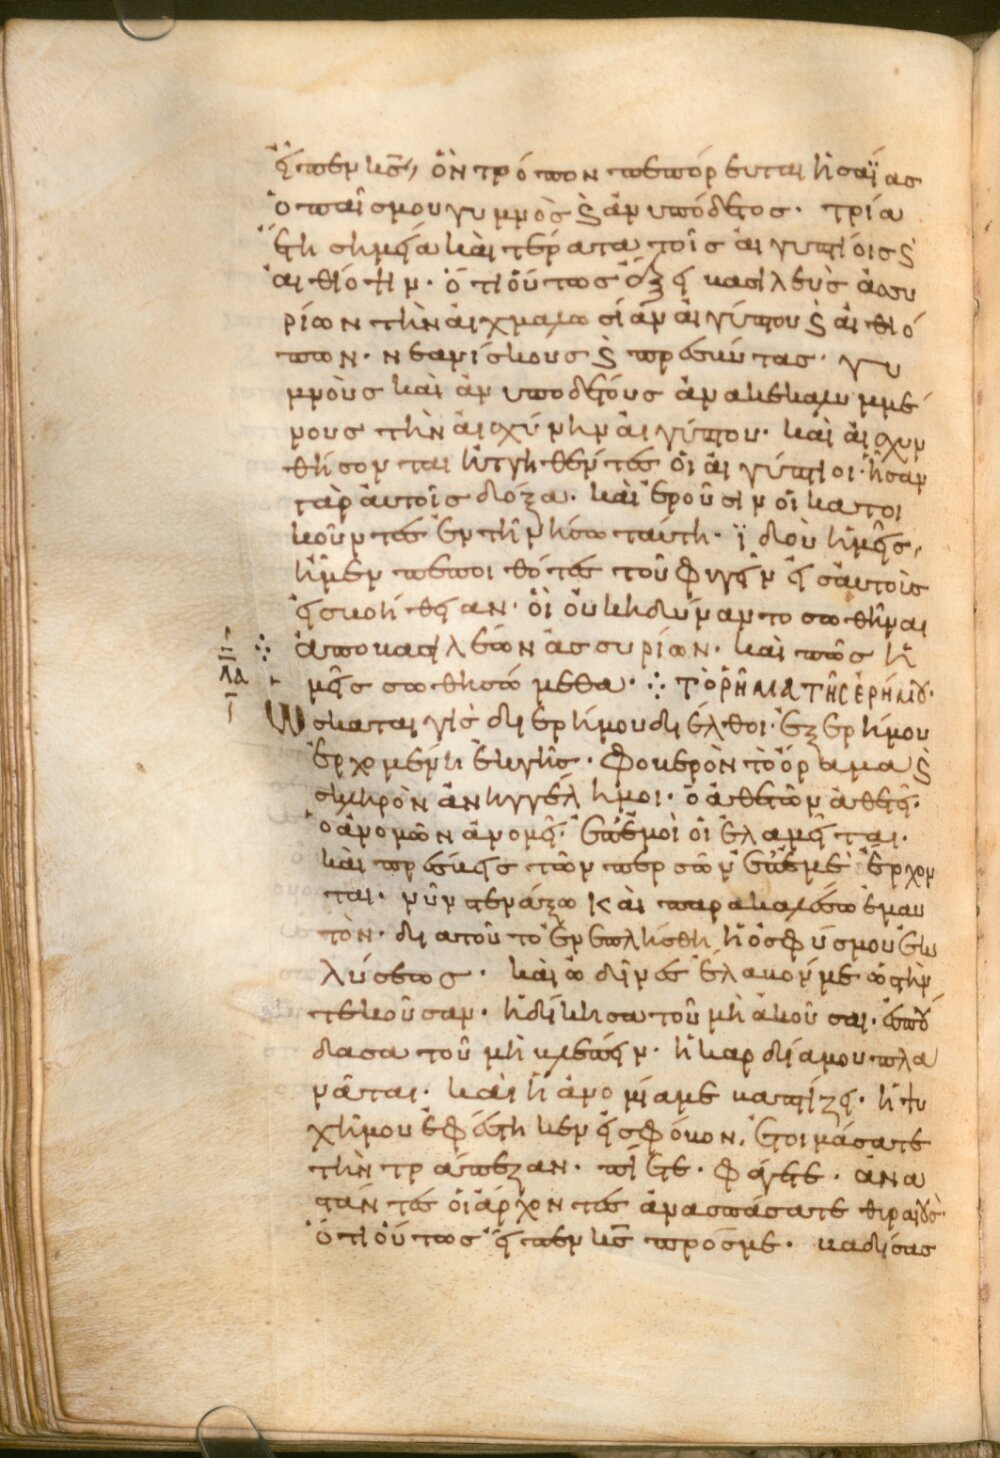 εἶπεν κ̅ς̅, ὃν τρόπον πεπόρευται ἡσαΐας
ὁ παῖς μου γυμνὸς ϗ ἀνυπόδετος· τρία
ἔτη σημεῖα καὶ τέρατα τοῖς αἰγυπτίοις ϗ
αἰθίοψιν· ὅτι οὕτως ἄξει βασιλεὺς ἀσσυ
ρίων τὴν αἰχμαλωσίαν αἰγύπτου ϗ αἰθιό
πων· νεανίσκους ϗ πρεσβύτας· γυ
μνοὺς καὶ ἀνυποδέτους ἀνακεκαλυμμέ
νους τὴν αἰσχύνην αἰγύπτου· καὶ αἰσχυν
θήσονται ἡττηθέντες οἱ αἰγύπτιοι· ἦσαν
γὰρ αὐτοῖς δόξα· καὶ ἐροῦσιν οἱ κατοι
κοῦντες ἐν τῇ νήσω ταύτη· ἰδοὺ ἡμεῖς,
ἦμεν πεποιθότες τοῦ φυγεῖν εἰς αὐτοὺς
εἰς βοήθειαν· οἳ οὐκ ηδύναντο σωθῆναι
ἀπὸ βασιλέων ἀσσυρίων· καὶ πῶς ἡ
μεῖς σωθησόμεθα· ⁘ τὸ ῥῆμα τῆς ἐρήμου·
λα
Ὡς καταιγὶς δι ἐρήμου διέλθοι· ἐξ ἐρήμου
ἐρχομένη ἐκ γῆς· φοβερὸν τὸ ὅραμα ϗ
σκληρὸν ἀνηγγέλη μοι· ὁ ἀθετῶν ἀθετεῖ·
ὁ ἀνομῶν ἀνομεῖ· ἐπ ἐμοὶ οἱ ἐλαμεῖται·
καὶ πρέσβεις τῶν περσῶν ἐπ ἐμὲ ἔρχον
ται· νῦν στενάξω καὶ παρακαλέσω ἐμαυ
τόν· διατοῦτο ἐνεπλήσθη ἡ ὀσφύς μου ἐκ
λύσεως· καὶ ὠδῖνες ἔλαβόν με ὡς τὴν
τίκουσαν· ἠδίκησα τοῦ μὴ ἀκοῦσαι· ἐσπού
δασα τοῦ μὴ βλέπειν· ἡ καρδία μου πλα
νᾶται· καὶ ἡ ἀνομία με βαπτίζει· ἡ ψυ
χή μου ἐφέστηκεν εἰς φόβον, ἑτοιμάσατε
τὴν τράπεζαν· πίετε· φάγετε· ἀνα
στάντες οἱ ἄρχοντες ἀνασπάσατε θυραιοὺς·
ὅτι οὕτως εἶπεν κ̅ς̅ πρός με· βαδίσας